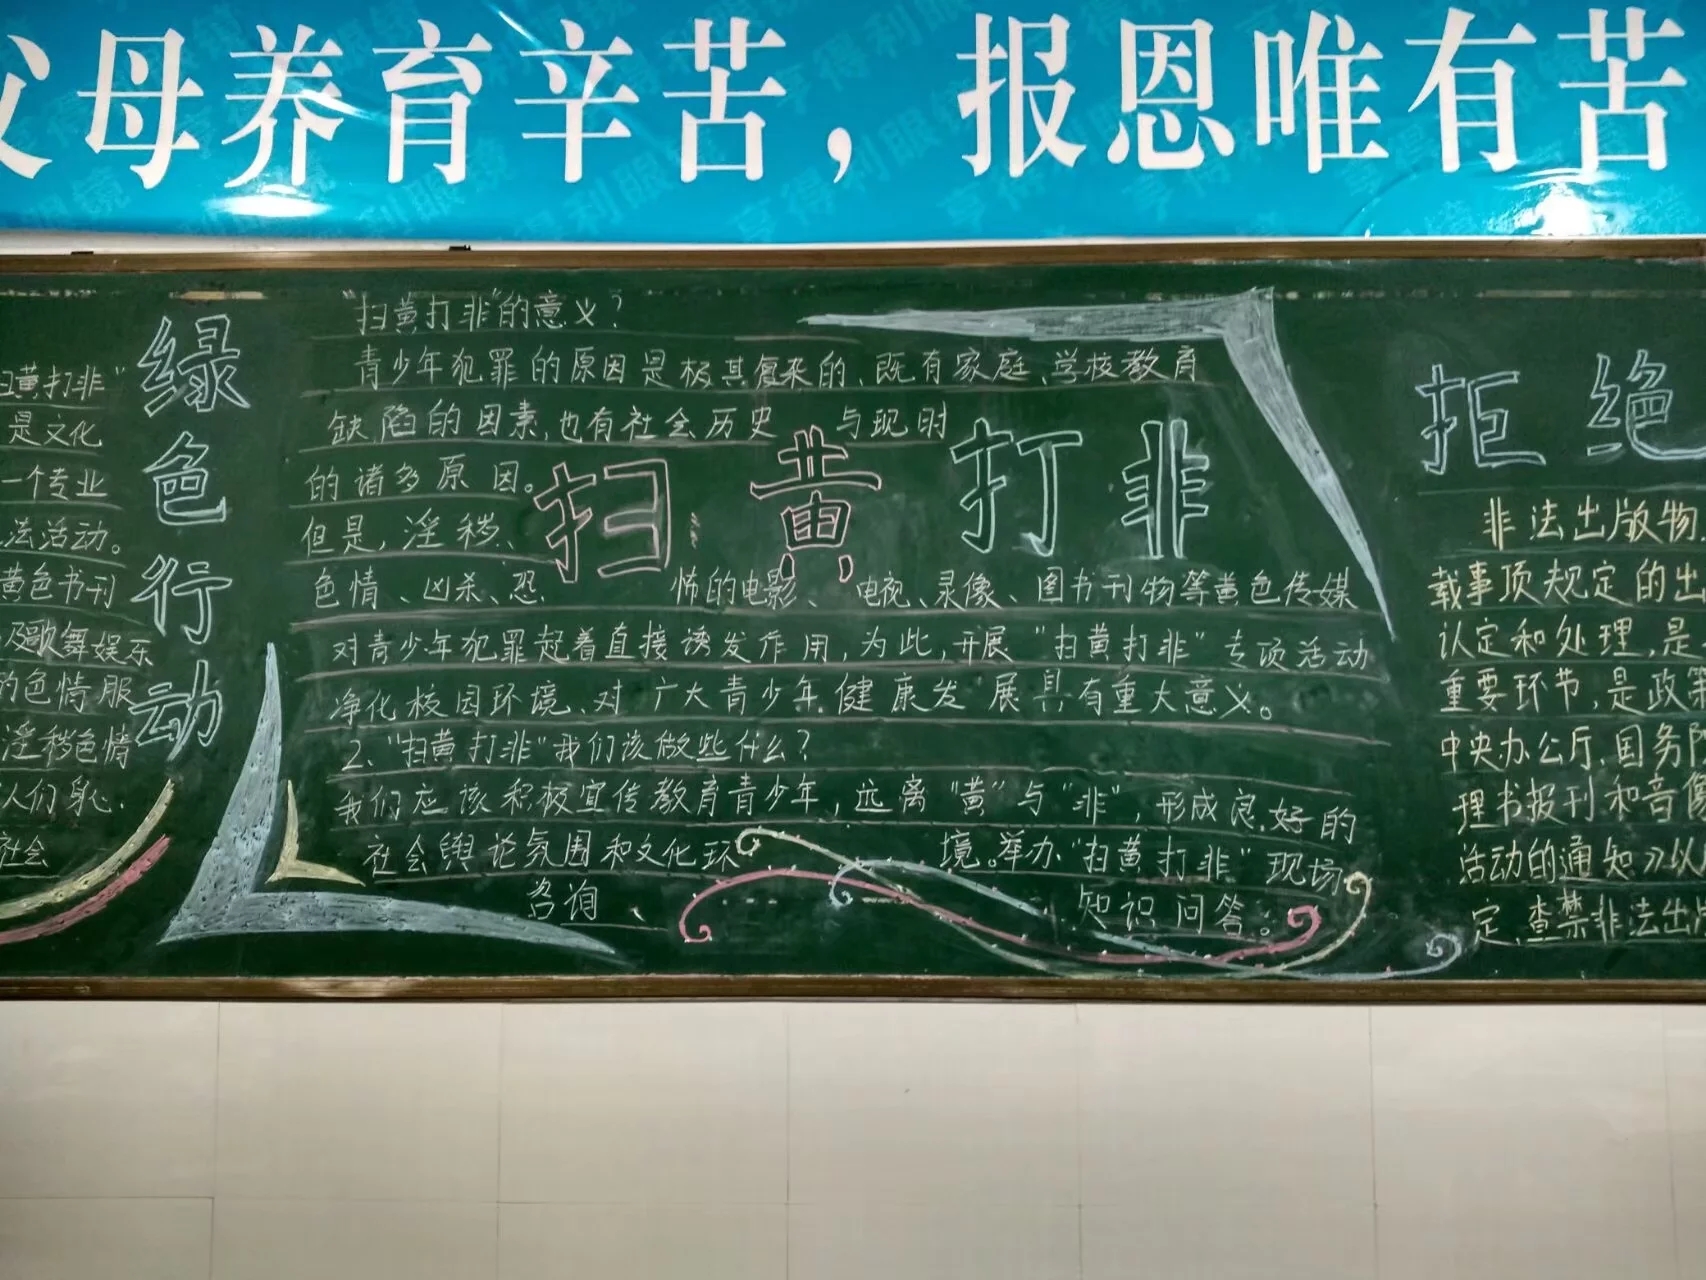 父母养育辛苦，报恩唯有苦
扫黄打非”
是文化
一个专业
法活动。
黄色书刊
及歌舞娱乐
的色情服
淫秽色情
人们身心
社会
绿色行动
“扫黄打非”的意义？
青少年犯罪的原因是极其复杂的、既有家庭、学校教育
缺陷的因素,也有社会历史 与现时
的诸多原因。
但是,淫秽、
色情、凶杀、恐 怖的电影、电视、录像、图书刊物等黄色传媒
对青少年犯罪起着直接诱发作用,为此,开展“扫黄打非”专项活动
净化校园环境、对广大青少年健康发展具有重大意义。
2、“扫黄打非”我们该做些什么？
我们应该积极宣传教育青少年,远离“黄”与“非”,形成良好的
社会舆论氛围和文化环 境。举办“扫黄打非”现场
咨询、 知识问答。
扫黄打非
拒绝
非法出版物
载事项规定的出
认定和处理,是
重要环节,是政策
中央办公厅、国务院
理书报刊和音像
活动的通知》以
定,查禁非法出版
享得利眼镜